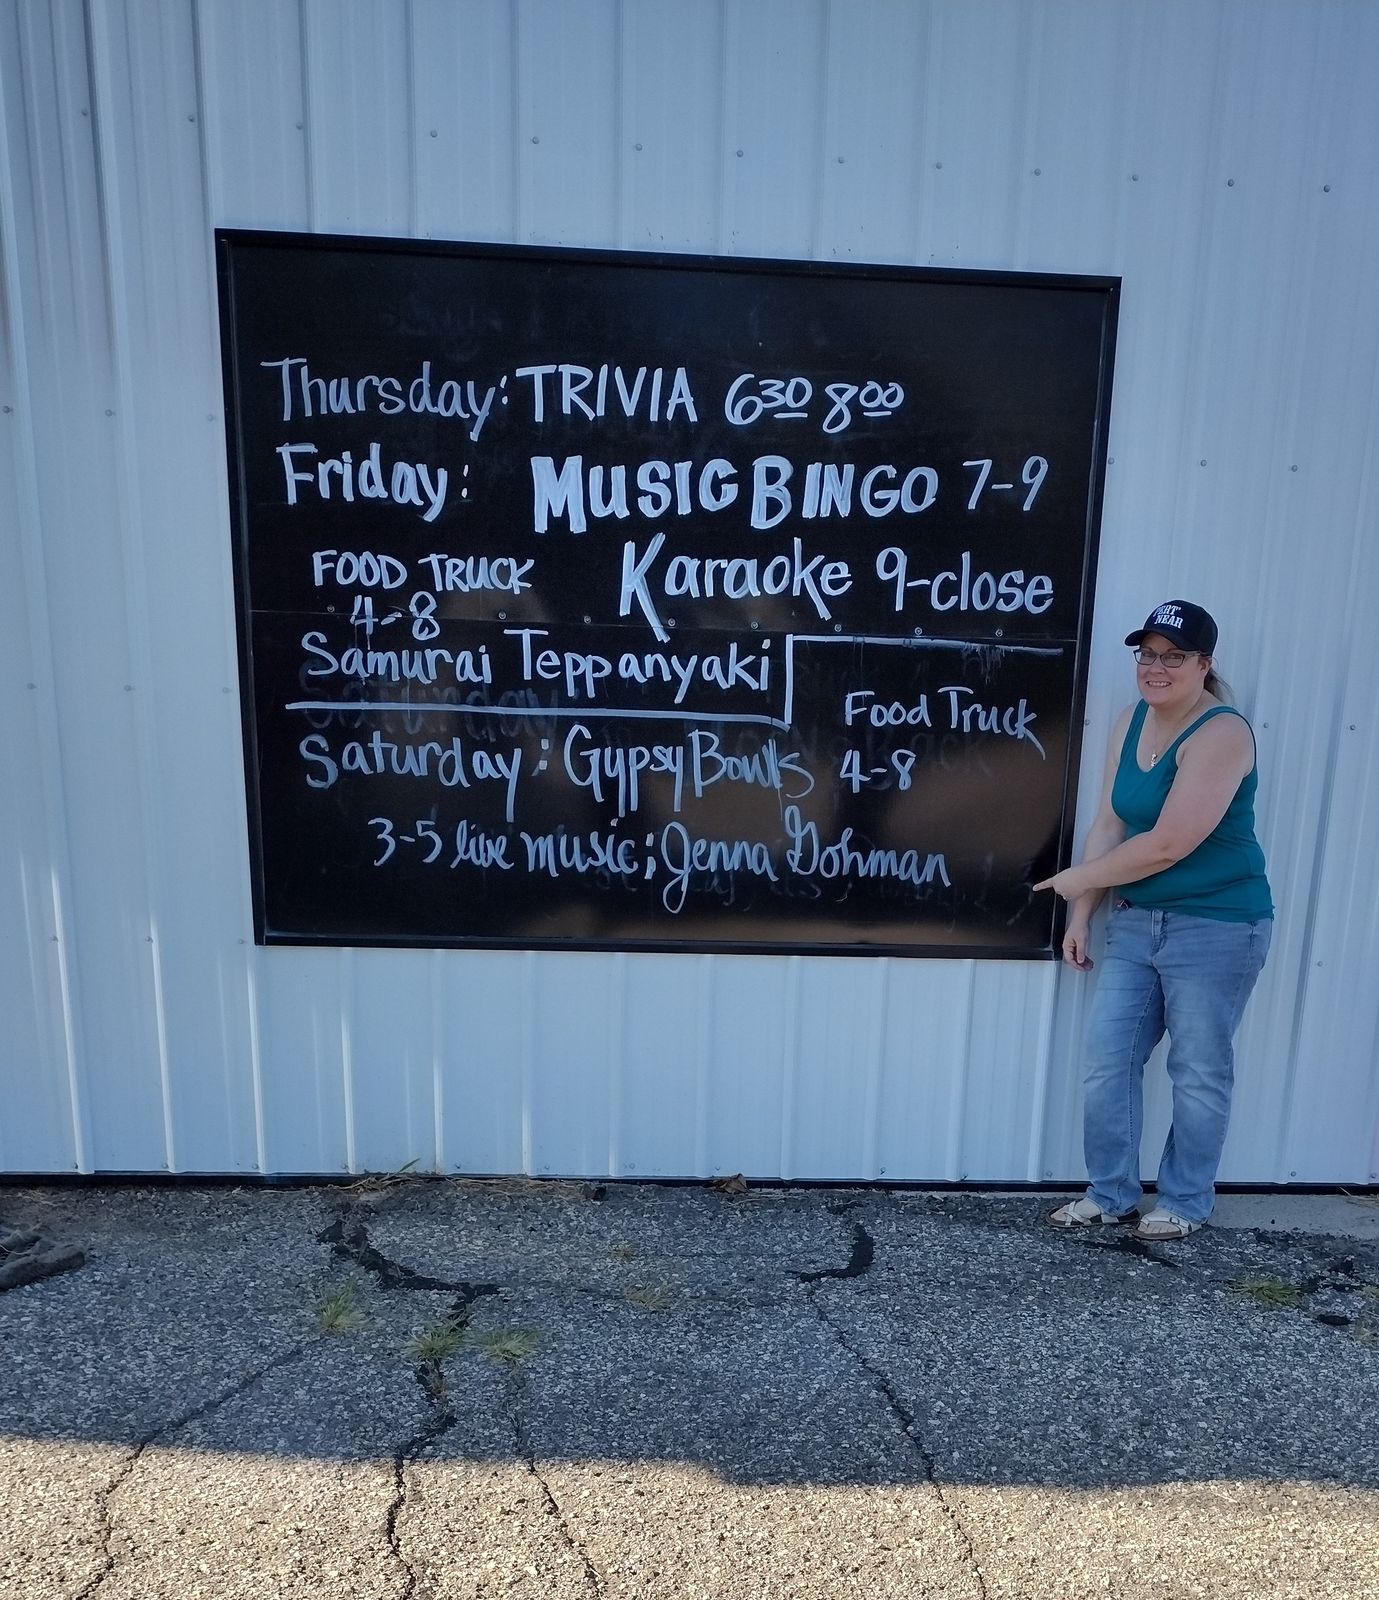 Thursday: TRIVIA 6³⁰ 8⁰⁰
Friday: MUSIC BINGO 7-9
FOOD TRUCK Karaoke 9-close
4-8
Samurai Teppanyaki
Food Truck
Saturday: Gypsy Bowls 4-8
3-5 live music; Jenna Gohman
PERT
NEAR